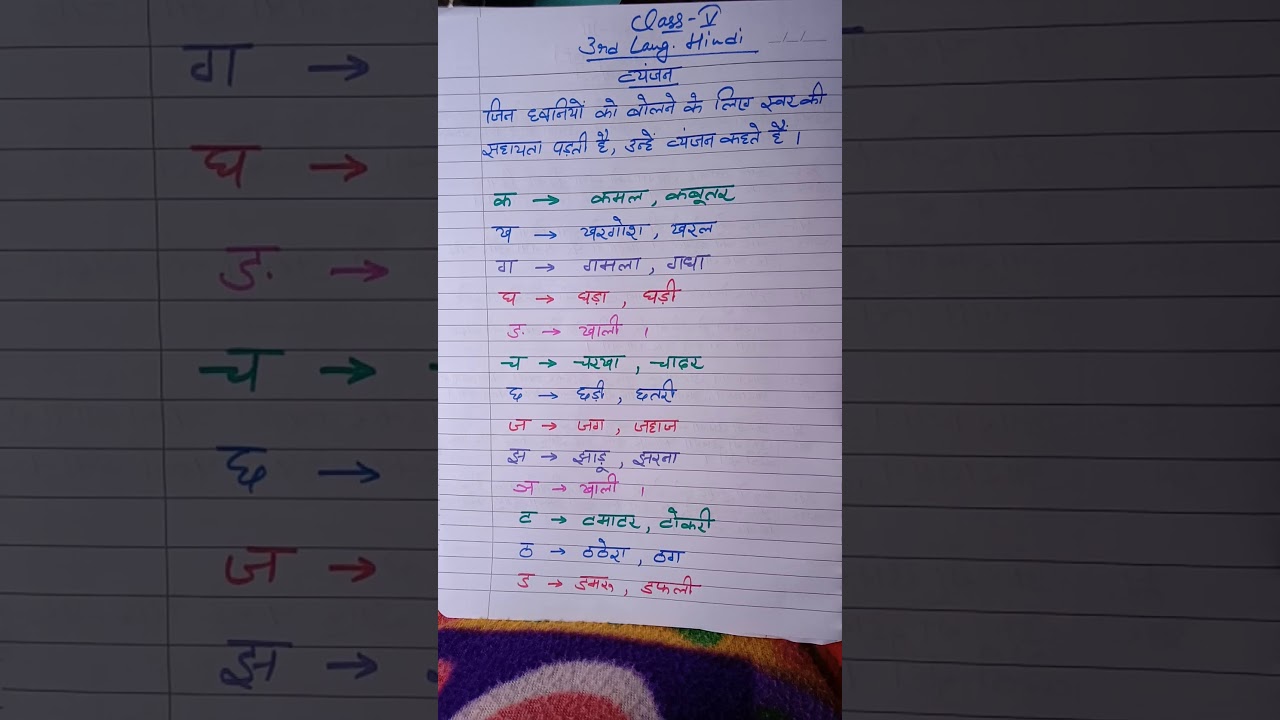 Class - V
3rd Lang. Hindi
व्यंजन
जिन ध्वनियों को बोलने के लिए स्वर की
सहायता पड़ती है, उन्हें व्यंजन कहते हैं।
क → कमल, कबूतर
ख → खरगोश, खरल
ग → गमला, गधा
घ → घड़ा, घड़ी
ङ → खाली।
च → चरखा, चादर
छ → छड़ी, छतरी
ज → जग, जहाज
झ → झाड़ू, झरना
ञ → खाली।
ट → टमाटर, टोकरी
ठ → ठठेरा, ठग
ड → डमरू, डफली
ग →
घ →
ङ →
च →
छ →
ज →
झ →